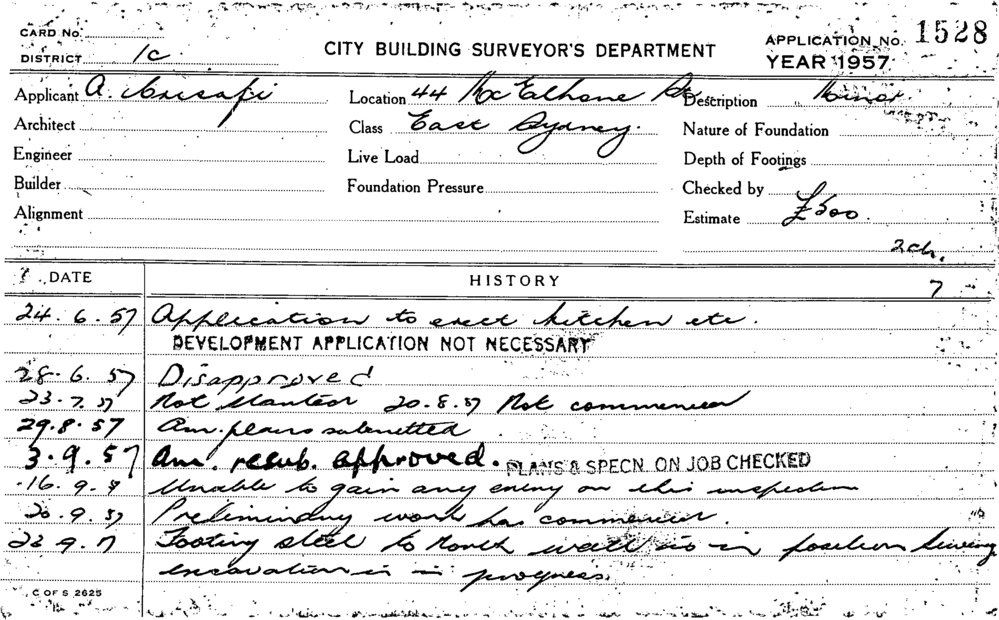 CARD No.
DISTRICT 1c
CITY BUILDING SURVEYOR'S DEPARTMENT
APPLICATION No. 1528
YEAR 1957
Applicant A. Crisafi Location 44 McElhone St Description Minor
Architect Class East Sydney. Nature of Foundation
Engineer Live Load Depth of Footings
Builder Foundation Pressure Checked by
Alignment Estimate £500
2ch.
DATE HISTORY 7
24.6.57 Application to erect kitchen etc.
DEVELOPMENT APPLICATION NOT NECESSARY
28.6.57 Disapproved
23.7.57 Not started 20.8.57 Not commenced
29.8.57 Am. plans submitted
3.9.57 Am. resub. approved. PLANS & SPECN. ON JOB CHECKED
16.9.57 Unable to gain any entry on this inspection
20.9.57 Preliminary work has commenced.
23 9.57 Footing steel to North wall is in position
excavation is in progress.
C OF S 2625